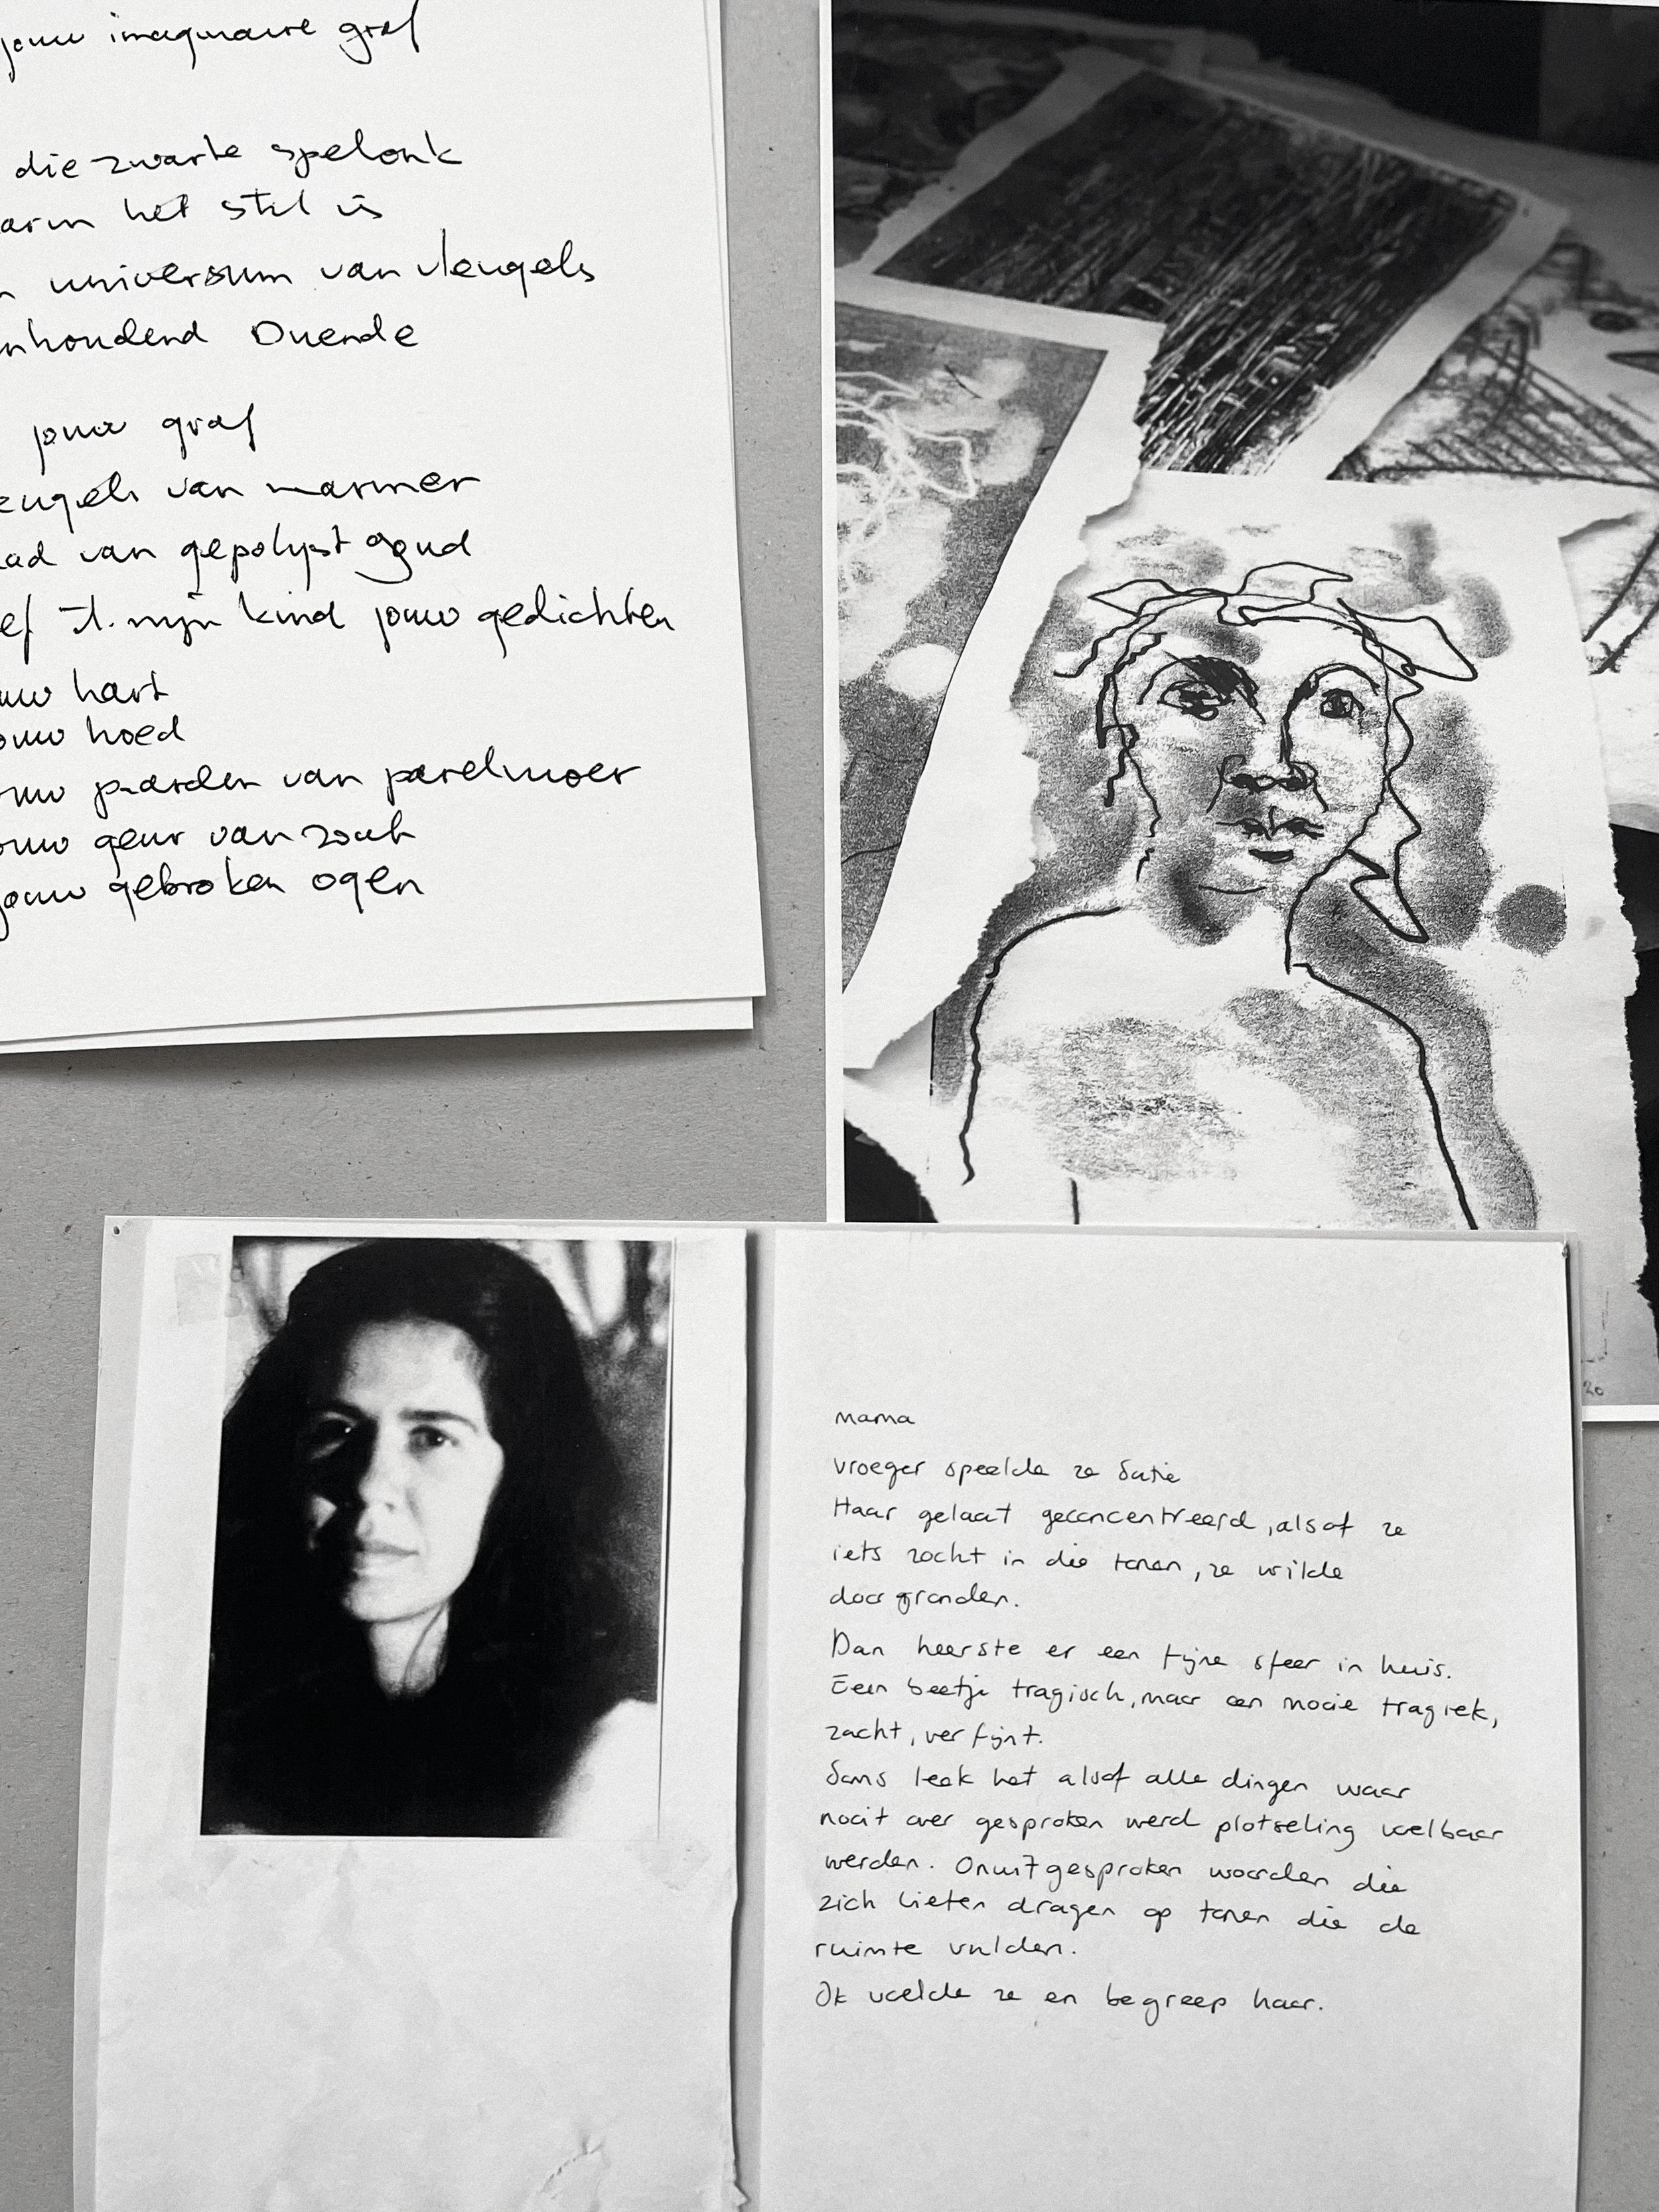 jouw imaginaire graf
die zwarte spelonk
arin het stil is
n universum van vleugels
nhoudend Duende
jouw graf
eugels van marmer
ad van gepolijst goud
ef mijn kind jouw gedichten
uw hart
ouw hoed
ouw paarden van parelmoer
ouw geur van zout
jouw gebroken ogen
mama
vroeger speelde ze Satie
Haar gelaat geconcentreerd, alsof ze
iets zocht in die tonen, ze wilde
doorgronden.
Dan heerste er een fijne sfeer in huis.
Een beetje tragisch, maar een mooie tragiek,
zacht, verfijnt.
Soms leek het alsof alle dingen waar
nooit over gesproken werd plotseling voelbaar
werden. Onuitgesproken woorden die
zich lieten dragen op tonen die de
ruimte vulden.
Ik voelde ze en begreep haar.
20